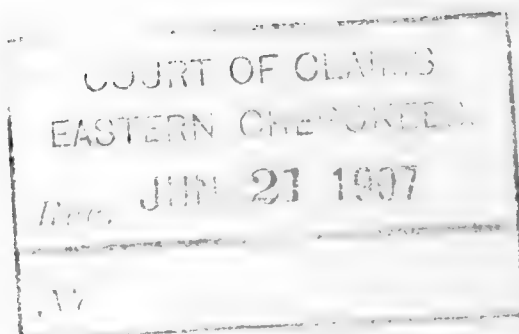 COURT OF CLAIMS
EASTERN CHEROKEES
Rec. JUN 21 1907